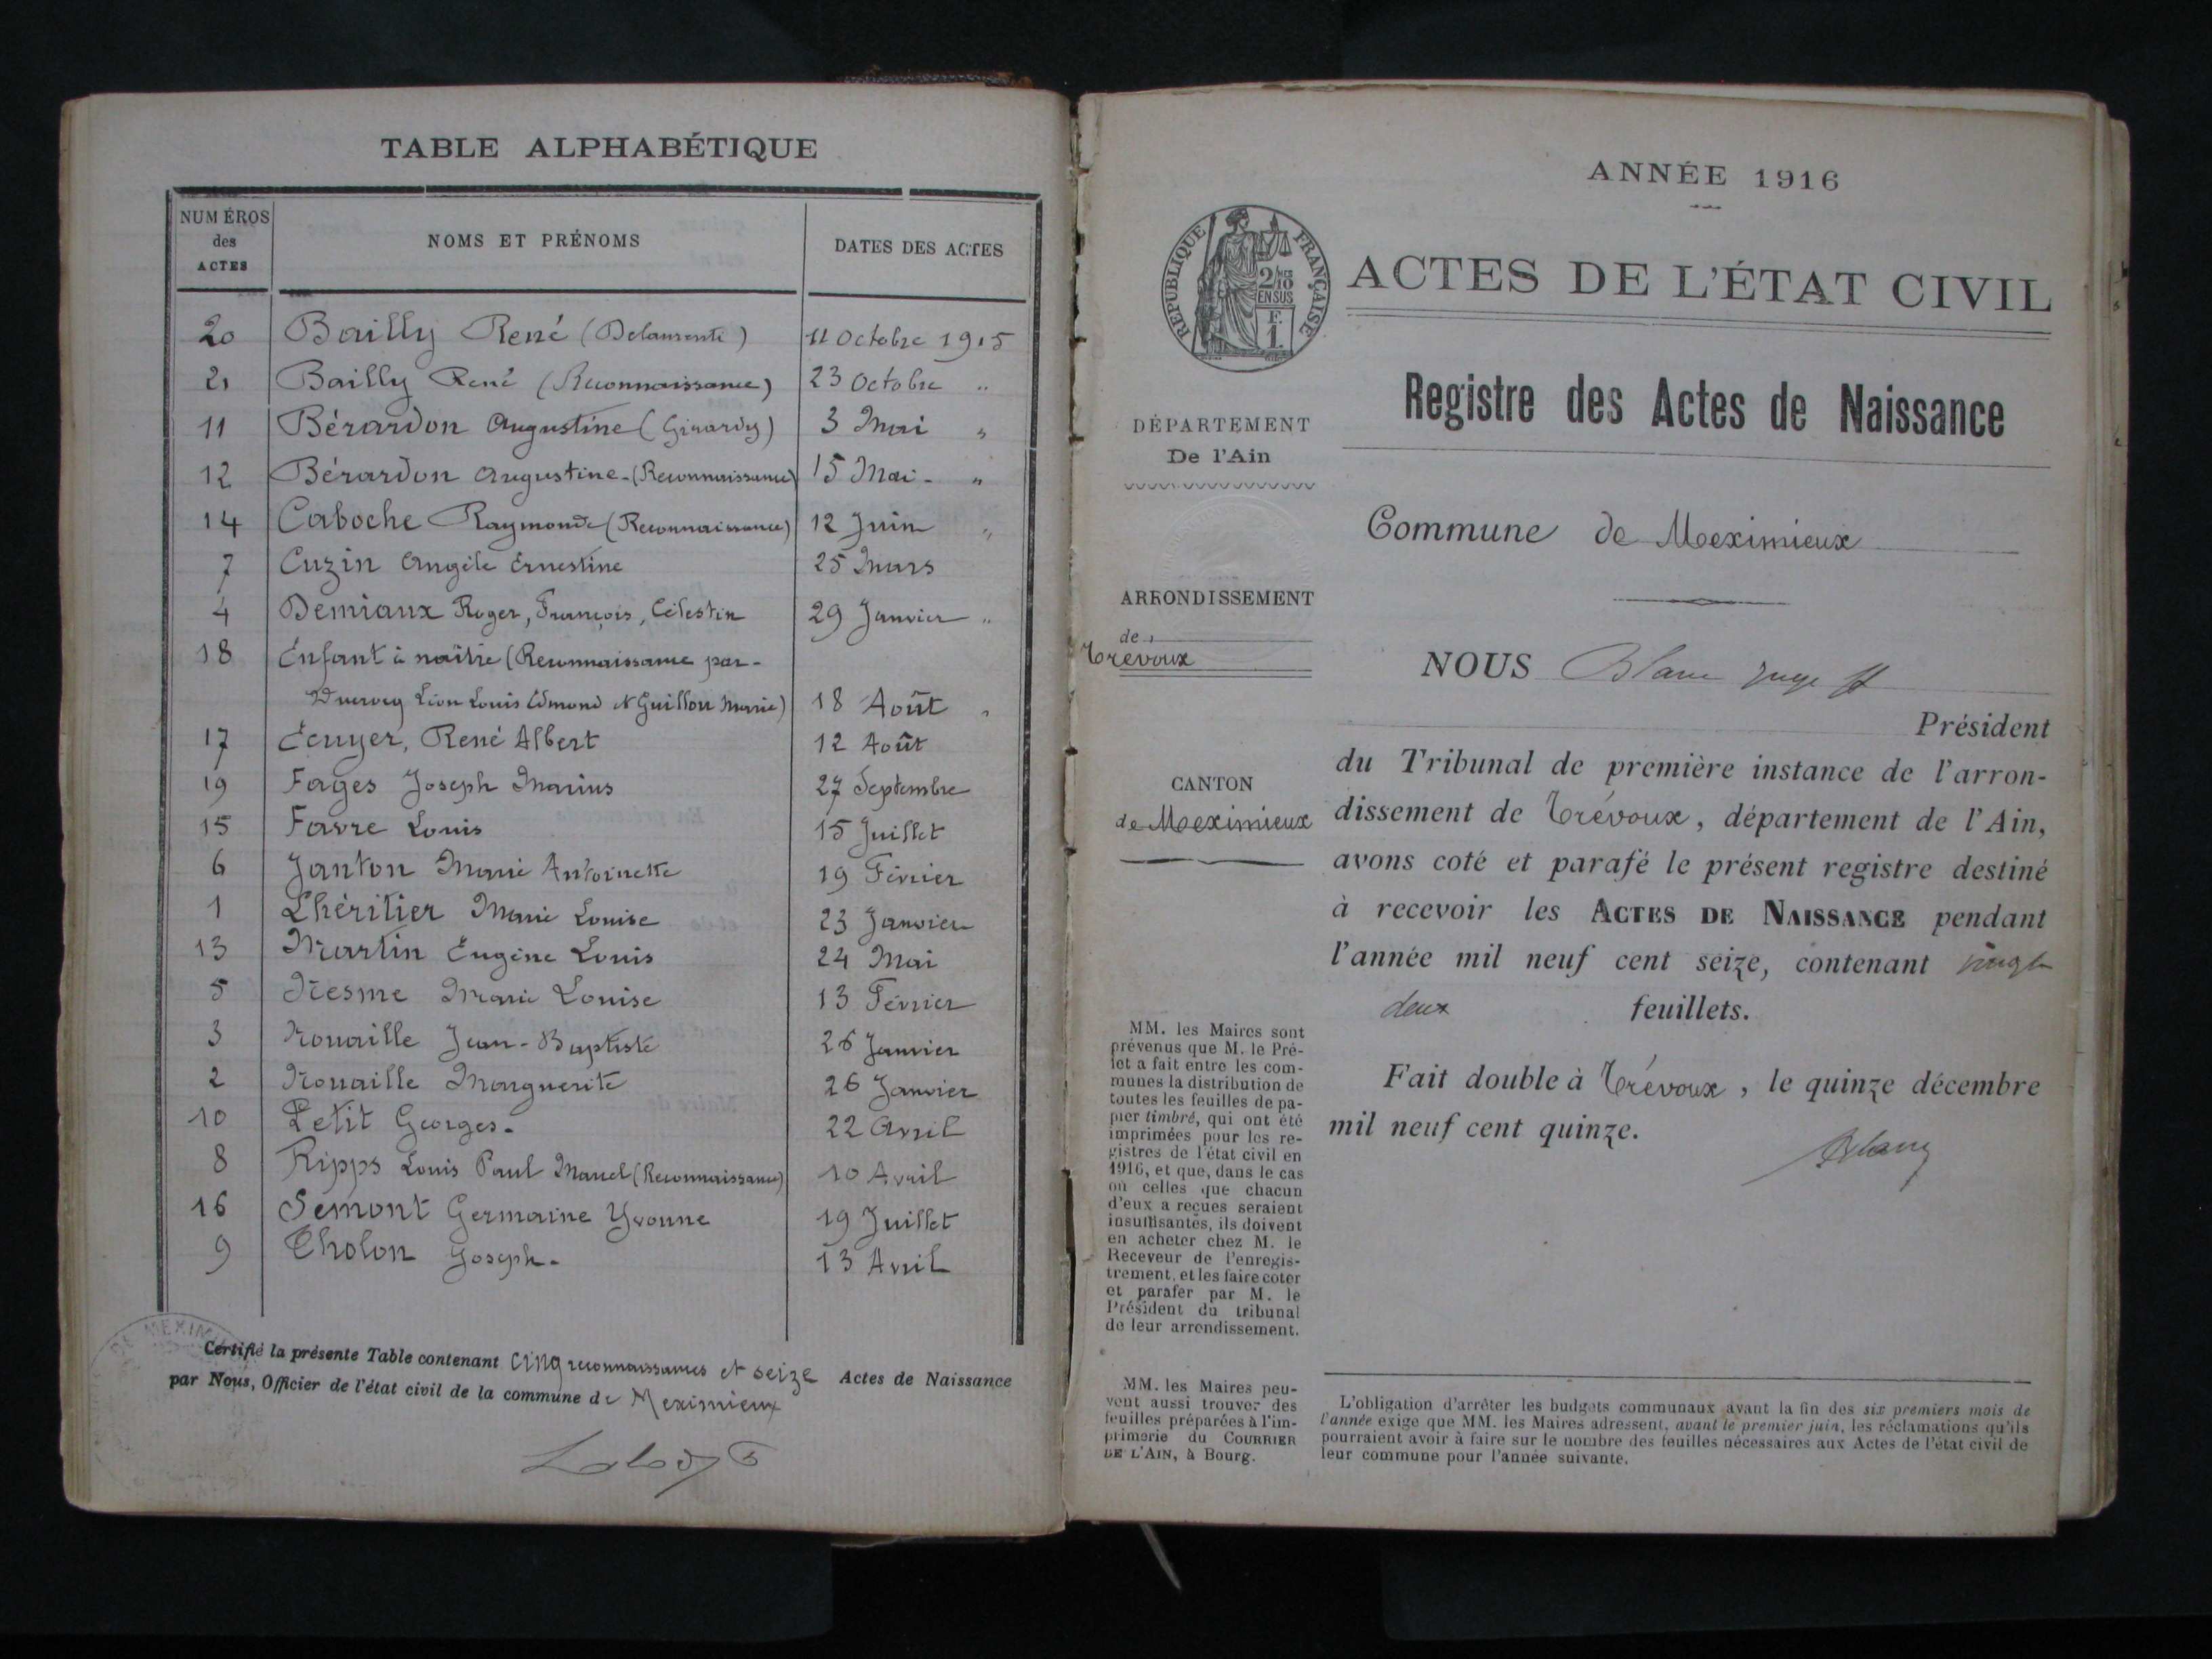 TABLE ALPHABÉTIQUE
NUMÉROS des ACTES NOMS ET PRÉNOMS DATES DES ACTES
20 Bailly René 11 Octobre 1915
21 Bailly René (Reconnaissance) 23 Octobre "
11 Bérardon Augustine (Girardy) 3 Mai "
12 Bérardon Augustine - (Reconnaissance) 15 Mai - "
14 Caboche Raymonde (Reconnaissance) 12 Juin "
7 Cuzin Angèle Ernestine 25 Mars
4 Demiaux Roger, François, Célestin 29 Janvier "
18 Enfant à naître (Reconnaissance par -
Léon Louis Edmond et Guillon Marie) 18 Août "
17 Écuyer, René Albert 12 Août
19 Fages Joseph Marius 27 Septembre
15 Favre Louis 15 Juillet
6 Janton Marie Antoinette 19 Février
1 Lhéritier Marie Louise 23 Janvier
13 Martin Eugène Louis 24 Mai
5 Nesme Marie Louise 13 Février
3 Nouaille Jean-Baptiste 26 Janvier
2 Nouaille Marguerite 26 Janvier
10 Petit Georges. 22 Avril
8 Ripps Louis Paul Marcel (Reconnaissance) 10 Avril
16 Sémont Germaine Yvonne 19 Juillet
9 Tholon Joseph. 13 Avril
Certifié la présente Table contenant cinq reconnaissances et seize Actes de Naissance
par Nous, Officier de l'état civil de la commune de Meximieux
ANNÉE 1916
RÉPUBLIQUE FRANÇAISE
2/10 EN SUS
F. 1.
ACTES DE L'ÉTAT CIVIL
Registre des Actes de Naissance
DÉPARTEMENT
De l'Ain
Commune de Meximieux
ARRONDISSEMENT
de
Trévoux
NOUS Blanc juge ff
Président
du Tribunal de première instance de l'arron-
dissement de Trévoux, département de l'Ain,
avons coté et parafé le présent registre destiné
à recevoir les ACTES DE NAISSANCE pendant
l'année mil neuf cent seize, contenant vingt
deux feuillets.
Fait double à Trévoux, le quinze décembre
mil neuf cent quinze.
Blanc
CANTON
de Meximieux
MM. les Maires sont
prévenus que M. le Pré-
fet a fait entre les com-
munes la distribution de
toutes les feuilles de pa-
pier timbré, qui ont été
imprimées pour les re-
gistres de l'état civil en
1916, et que, dans le cas
où celles que chacun
d'eux a reçues seraient
insuffisantes, ils doivent
en acheter chez M. le
Receveur de l'enregis-
trement, et les faire coter
et parafer par M. le
Président du tribunal
de leur arrondissement.
MM. les Maires peu-
vent aussi trouver des
feuilles préparées à l'im-
primerie du COURRIER
DE L'AIN, à Bourg.
L'obligation d'arrêter les budgets communaux avant la fin des six premiers mois de
l'année exige que MM. les Maires adressent, avant le premier juin, les réclamations qu'ils
pourraient avoir à faire sur le nombre des feuilles nécessaires aux Actes de l'état civil de
leur commune pour l'année suivante.